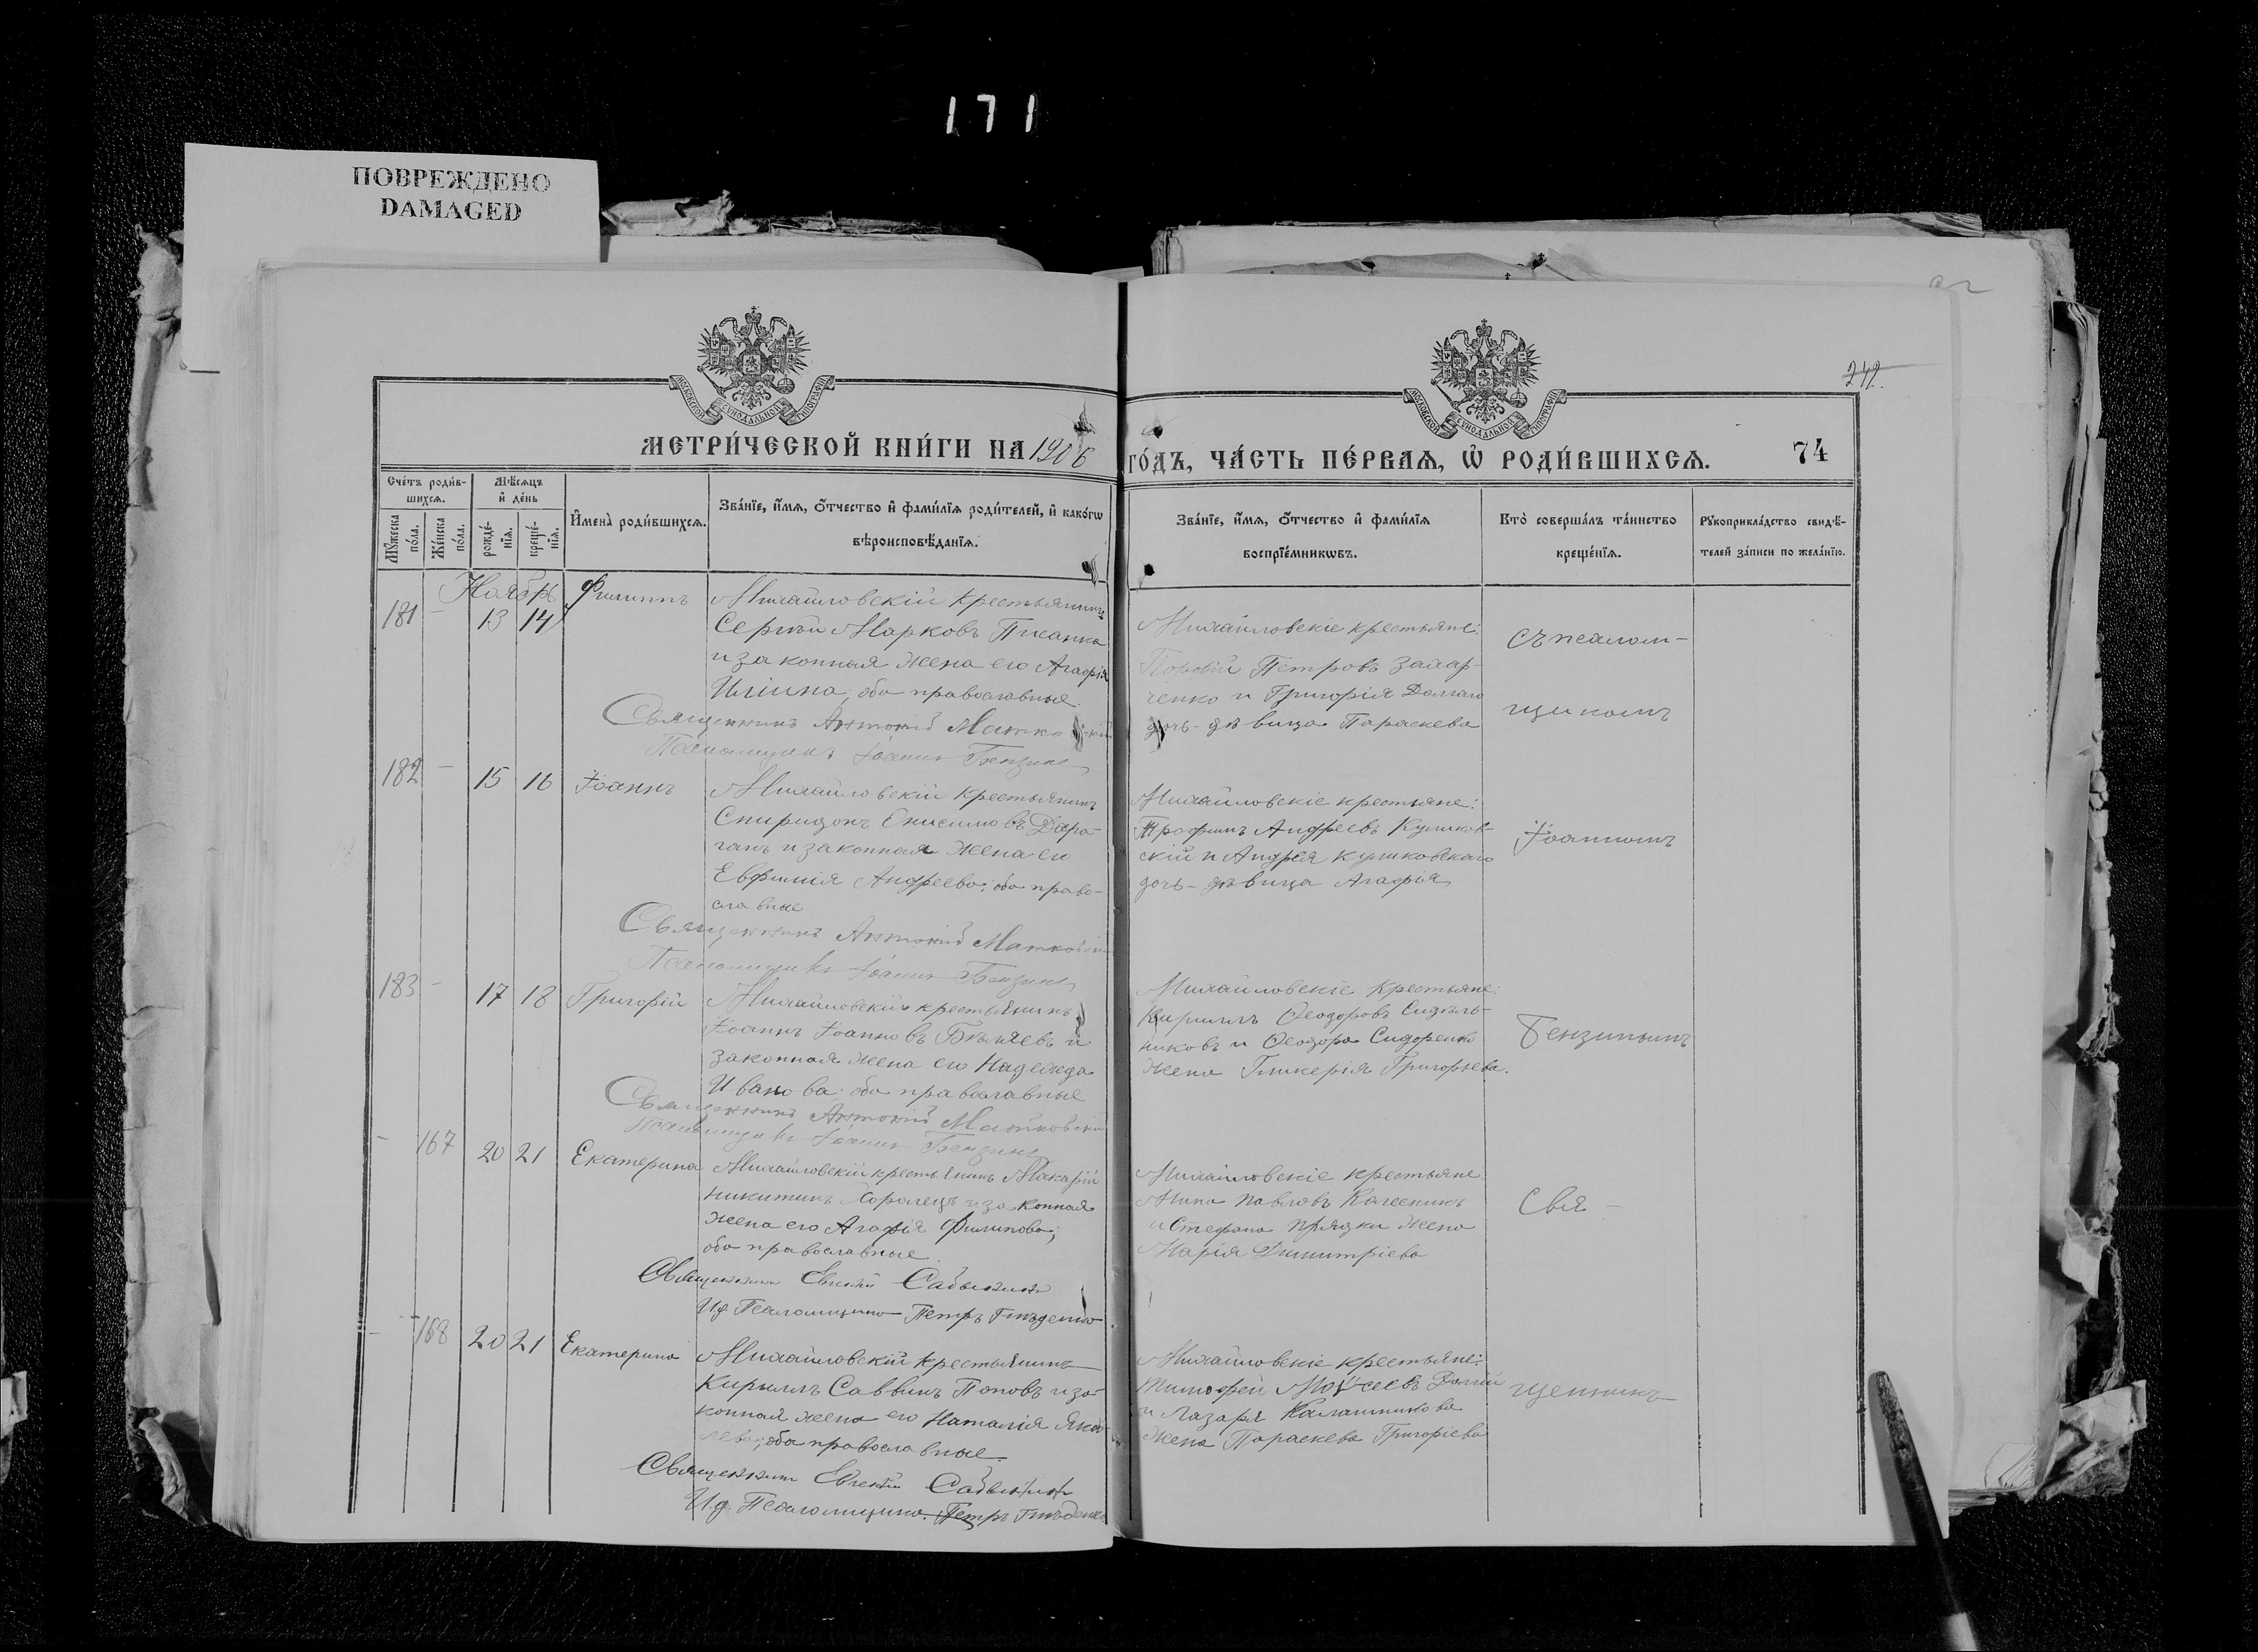 171
ПОВРЕЖДЕНО
DAMAGED
242.
МОСКОВСКОЙ СѴНОДАЛЬНОЙ ТИПОГРАФІИ
МОСКОВСКОЙ СѴНОДАЛЬНОЙ ТИПОГРАФІИ
МЕТРИ́ЧЕСКОЙ КНИ́ГИ НА 1906
ГО́ДЪ, ЧА́СТЬ ПЕ́РВАЯ, Ѡ҆ РОДИ́ВШИХСЯ.
74
Сче́тъ роди́в-
шихся.
Мѣ́сяцъ
и҆ де́нь
Мꙋ́жеска
по́ла.
Же́нска
по́ла.
рожде́-
нїя.
креще́-
нїя.
И҆мена̀ роди́вшихся.
Зва́нїе, и҆́мя, ѻ҆́тчество и҆ фами́лїя роди́телей, и҆ како́гѡ
вѣроисповѣ́данїя.
Зва́нїе, и҆́мя, ѻ҆́тчество и҆ фами́лїя
воспрїе́мникѡвъ.
Кто̀ соверша́лъ та́инство
креще́нїя.
Рꙋкоприкла́дство свидѣ́-
телей за́писи по жела́нїю.
Ноябрь
181 - 13 14 Филиппъ
Михайловскій крестьянинъ
Сергѣй Марковъ Писанка
и законная жена его Агафія
Иліина; оба православные.
Священникъ Антоній Матковскій
Псаломщикъ Іоаннъ Бензинъ
Михайловскіе крестьяне:
Петровъ Захар-
ченко и Григорія Долгаго
дочь-дѣвица Параскева
съ псалом-
щикомъ
182 - 15 16 Іоаннъ
Михайловскій крестьянинъ
Спиридонъ Онисимовъ Дара-
ганъ и законная жена его
Евфимія Андреева; оба право-
славные
Священникъ Антоній Матковскій
Псаломщикъ Іоаннъ Бензинъ
Михайловскіе крестьяне:
Трофимъ Андреевъ Куликов-
скій и Андрея Куликовскаго
дочь-дѣвица Агафія
Іоанномъ
183 - 17 18 Григорій
Михайловскій крестьянинъ
Іоаннъ Іоанновъ Бѣляевъ и
законная жена его Надежда
Иванова; оба православные
Священникъ Антоній Матковскій
Псаломщикъ Іоаннъ Бензинъ
Михайловскіе крестьяне:
Кириллъ Ѳеодоровъ Сидѣль-
никовъ и Ѳеодора Сидоренко
жена Гликерія Григорьева.
Бензинымъ
- 167 20 21 Екатерина
Михайловскій крестьянинъ Макарій
Никитинъ Хоролецъ и законная
жена его Агафія Филипова;
оба православные
Священникъ Евгеній
И.д. Псаломщика Петръ Гнѣденко
Михайловскіе крестьяне
Мина Павловъ Калесникъ
и Стефана Прядки жена
Марія Димитріева
Свя-
- 168 20 21 Екатерина
Михайловскій крестьянинъ
Кириллъ Саввинъ Поповъ и за-
конная жена его Наталія Яков-
лева; оба православные.
Священникъ Евгеній
И.д. Псаломщика. Петръ Гнѣденко
Михайловскіе крестьяне:
Тимофей Моѵсеевъ Долгій
и Лазаря Калашникова
жена Параскева Григоріева
щенникъ